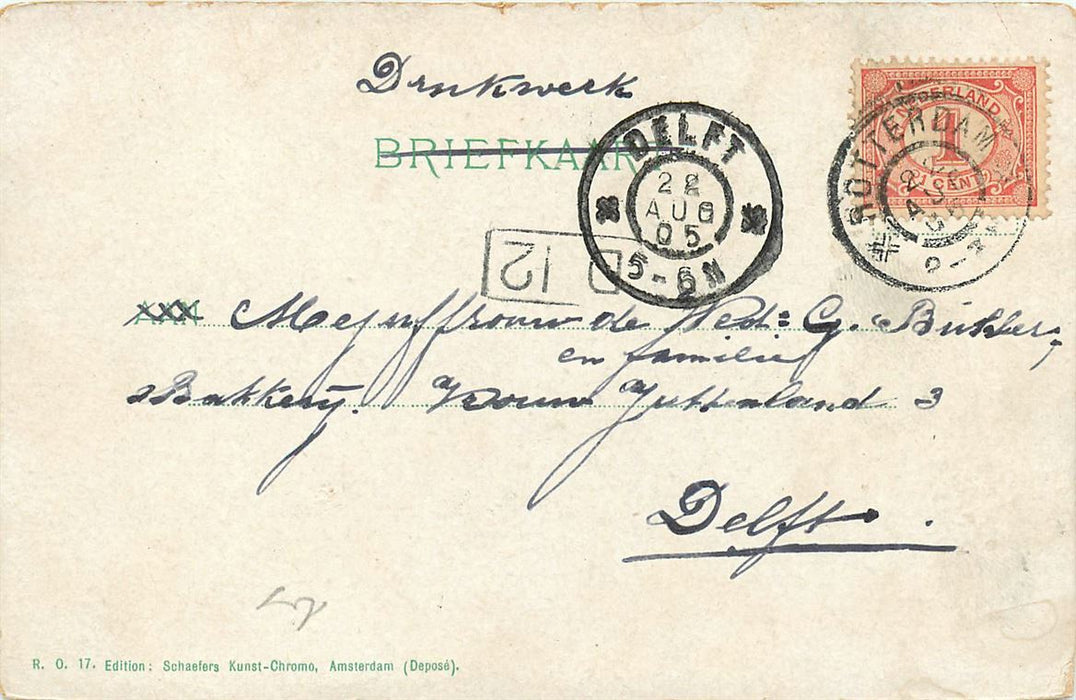 Drukwerk
BRIEFKAAR
DELFT
22
AUG
05
5-6N
NEDERLAND
1
CENT
ROTTERDAM
12 D
AAN Mejuffrouw de Wed: G.
en familie
Bakkerij. Vrouw Juttenland 3
Delft.
R. O. 17. Edition: Schaefers Kunst-Chromo, Amsterdam (Deposé).